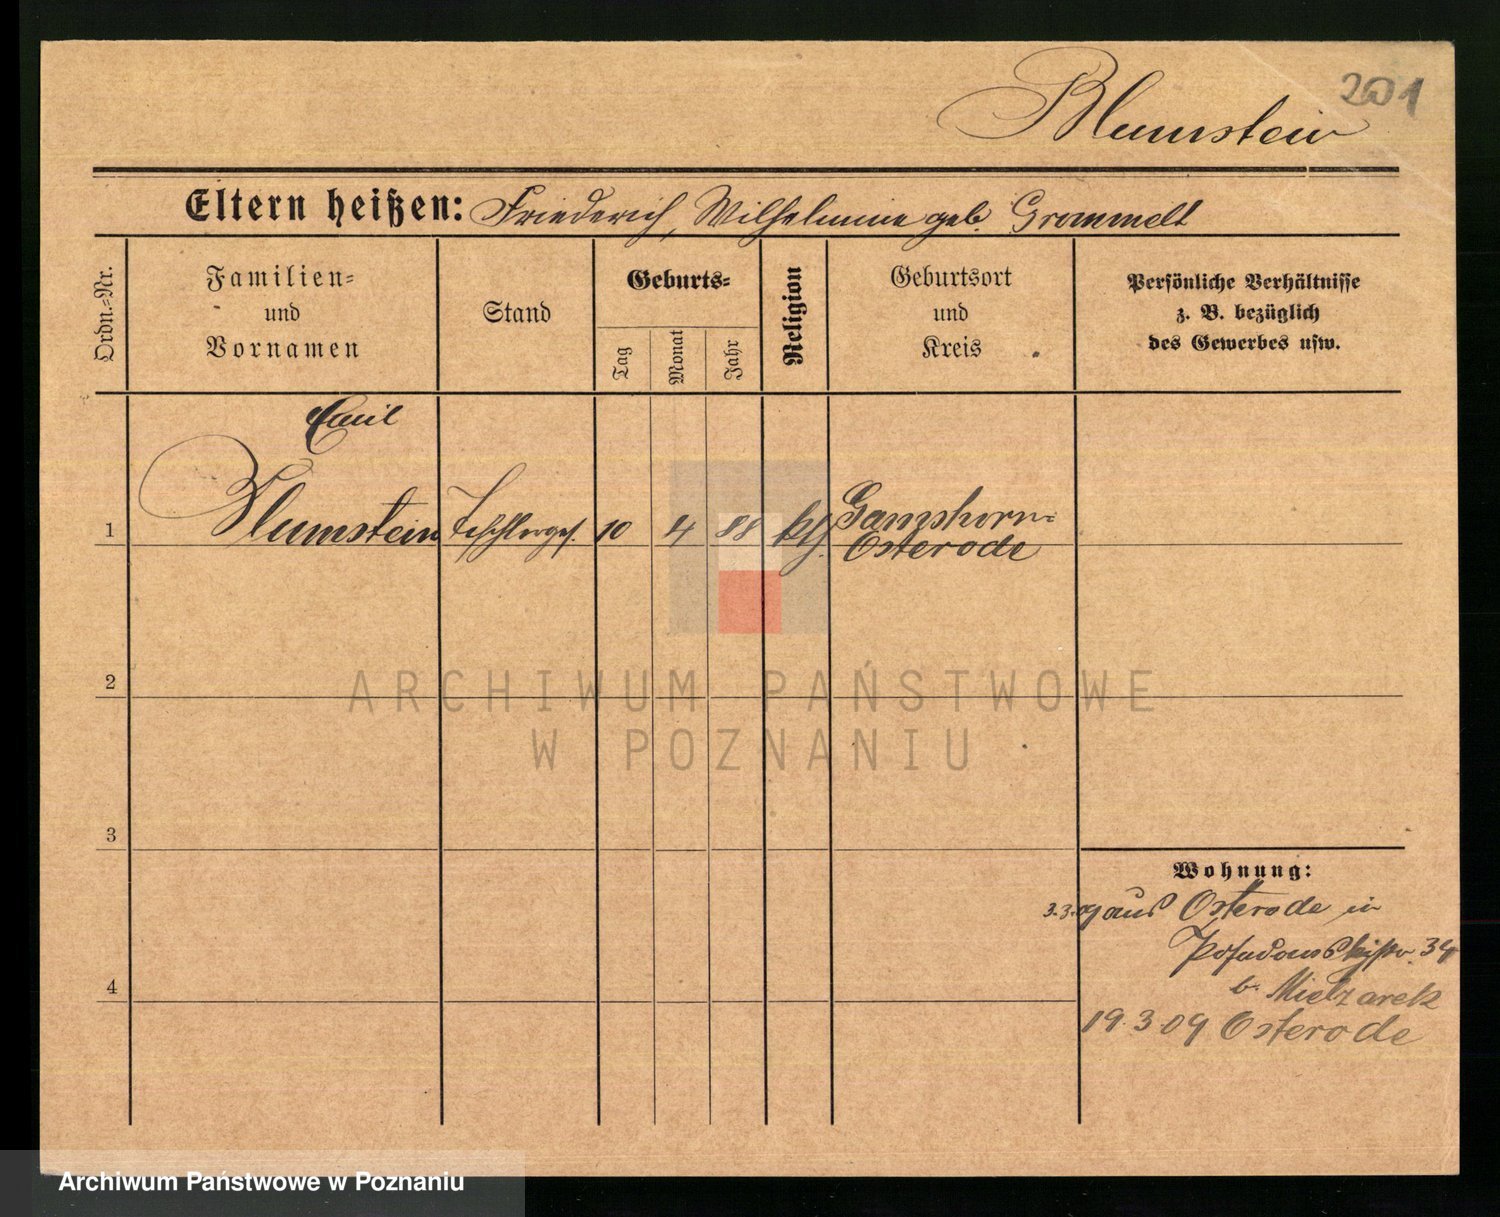 201
Blumstein
Eltern heißen: Friederich, Wilhelmine geb. Grommelt
Ordn.=Nr.
Familien=
und
Vornamen
Stand
Geburts=
Tag
Monat
Jahr
Religion
Geburtsort
und
Kreis
Persönliche Verhältnisse
z. B. bezüglich
des Gewerbes usw.
Emil
1 Blumstein Tischlerges. 10 4 88 kth. Ganshorn=
Osterode
2
3
4
Wohnung:
3.3.09 aus Osterode in
Posadowskistr. 34
b. Mielzarek
19.3.09 Osterode
ARCHIWUM PAŃSTWOWE
W POZNANIU
Archiwum Państwowe w Poznaniu